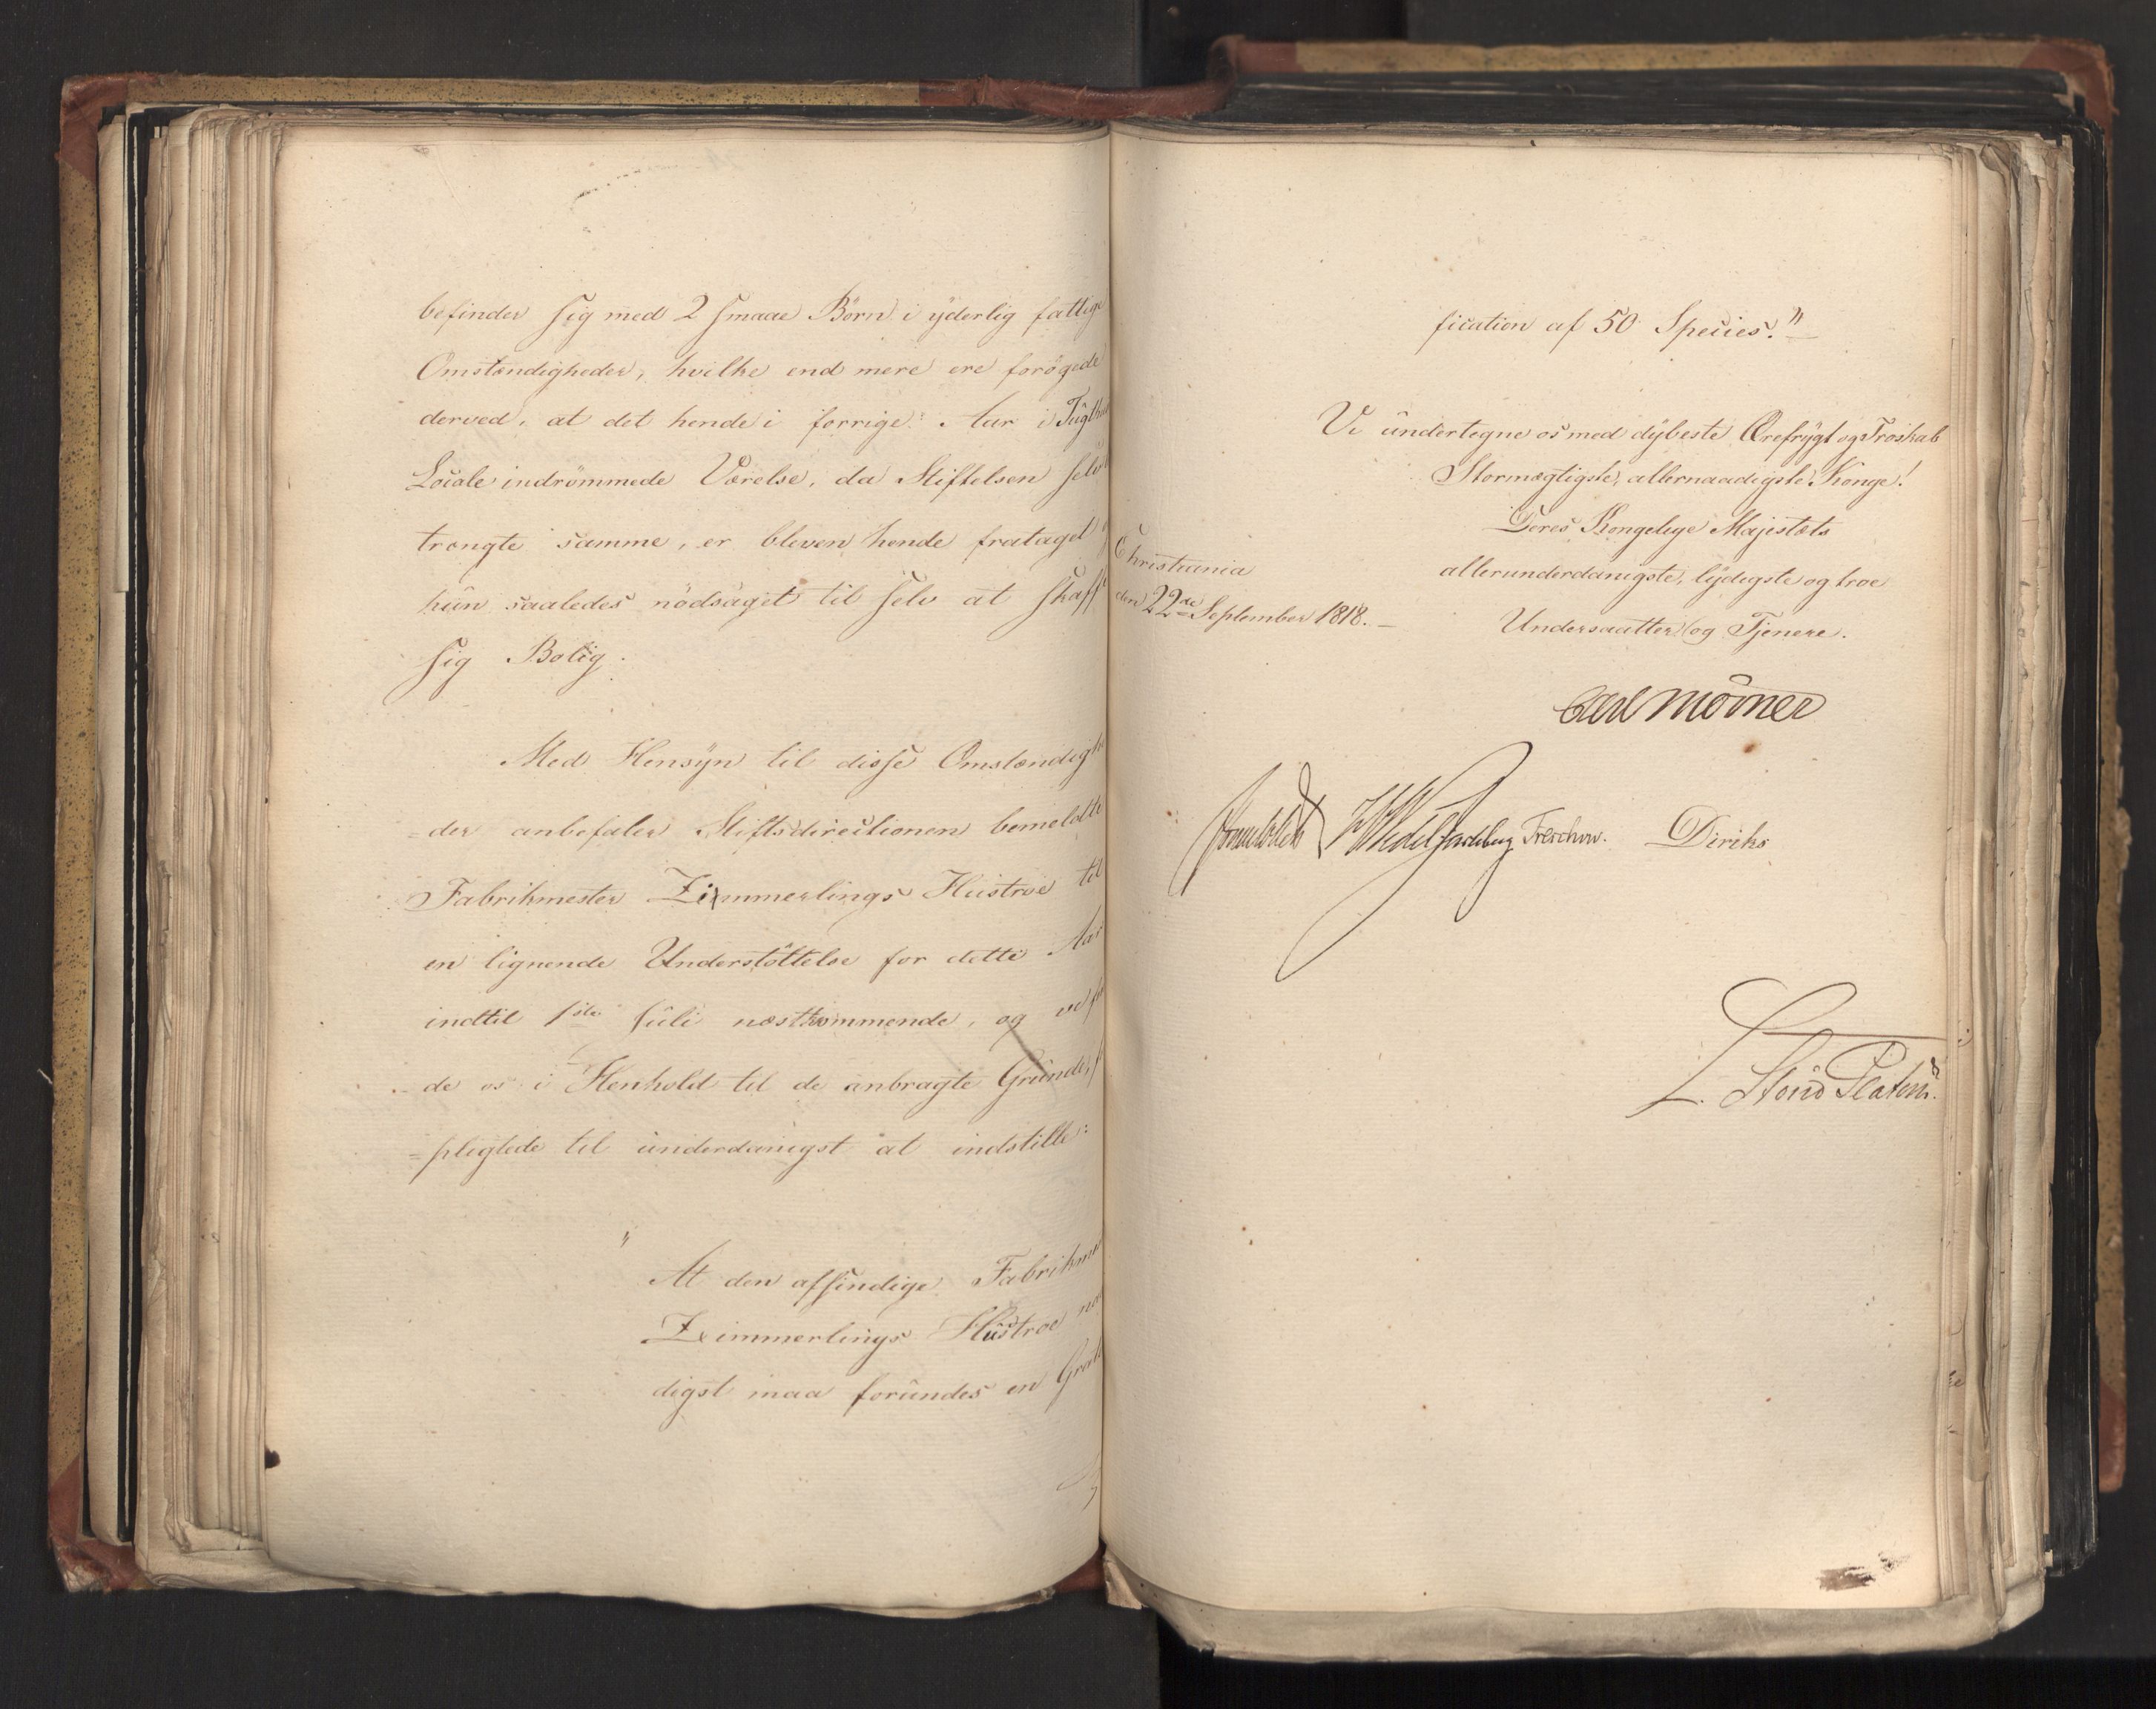 befinder sig med 2 smaae Børn i yderlig fattige
Omstændigheder, hvilke end mere ere forøgede
derved, at det hende i forrige Aar i Tugthu
Locale indrømmede Værelse, da Stiftelsen selv
trængte samme, er bleven hende frataget
hun saaledes nødsaget til selv at skaff
sig Bolig.
Med Hensyn til disse Omstændigh
=der anbefaler Stiftsdirectionen bemeldte
Fabrikmester Zimmerlings Hustroe til
en lignende Understøttelse for dette Aar
indtil 1ste Juli næstkommende, og
de os i Henhold til de anbragte Grunde, f
=pligtede til underdanigst at indstille:
" At den afsindige Fabrikme
Zimmerlings Hustroe naa
digst maa forundes en Grati
fication af 50 Species."
Vi undertegne os med dybeste Ærefrygt og Troskab
Stormægtigste, allernaadigste Konge!
Deres Kongelige Majestæts
allerunderdanigste, lydigste og troe
Undersaatter og Tjenere.
Christiania
den 22de September 1818.
Carl Mörner
Sommerhielm WedelJarlsberg Treschow. Diriks
L. Stoud Platou